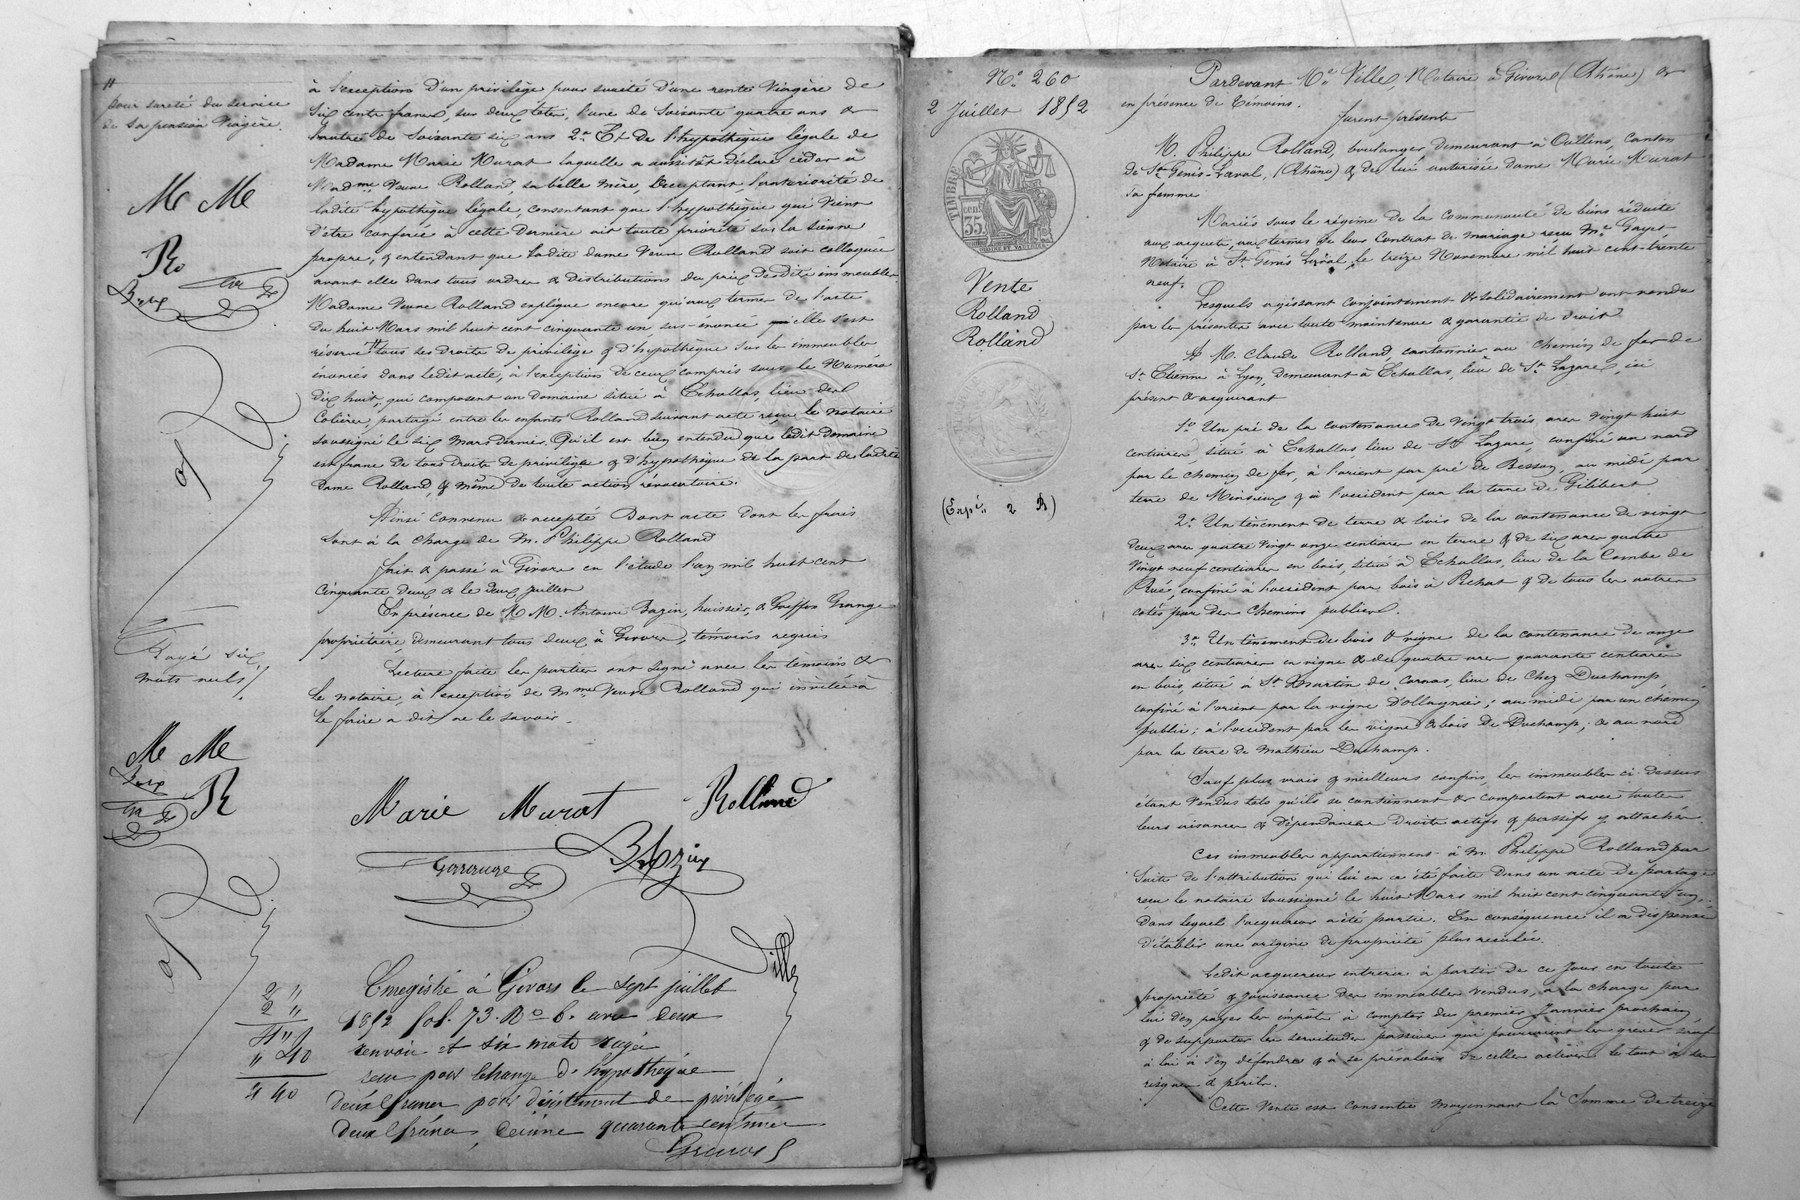 pour sureté du service
de sa pension viagère.
à l'exception d'un privilège pour sureté d'une rente viagère de
six cents francs, sur deux têtes, l'une de soixante quatre ans &
l'autre de soixante six ans 2° Et de l'hypothèque légale de
Madame Marie Murat laquelle a aussitôt déclaré céder à
Madme Veuve Rolland, sa belle mère, acceptant, l'antériorité de
ladite hypothèque légale, consentant que l'hypothèque qui vient
d'être conférée à cette dernière ait toute priorité sur la sienne
propre, & entendant que ladite dame Veuve Rolland soit colloquée
avant elle dans tous ordres & distributions du prix desdits immeubles
Madame Veuve Rolland explique encore qu'aux termes de l'acte
du huit Mars mil huit cent cinquante un sus-énoncé qu'elle s'est
réservé tous ses droits de privilège & d'hypothèque sur les immeubles
énoncés dans ledit acte, à l'exception de ceux compris sous le Numéro
dix huit, qui composent un domaine situé à Echallas, lieu de
Colière, partagé entre les enfants Rolland suivant acte reçu le notaire
soussigné le six Mars dernier. Qu'il est bien entendu que ledit domaine
est franc de tous droits de privilège & d'hypothèque de la part de ladite
dame Rolland, & même de toute action révocatoire.
Ainsi convenu & accepté Dont acte dont les frais
sont à la charge de M. Philippe Rolland
Fait & passé à Givors en l'étude l'an mil huit cent
cinquante deux & le deux juillet
En présence de M M. Antoine Bazin, huissier, & Grange
propriétaire, demeurant tous deux à Givors, témoins requis
Lecture faite les parties ont signé avec les témoins &
le notaire, à l'exception de Mme Veuve Rolland qui invitée à
le faire a dit ne le savoir.
M Me
Rayé six
mots nuls
M Me
R
Marie Murat Rolland
Bazin
Ville
Enregistré à Givors le sept juillet
1852 fol. 73. Ro c. 6. avec deux
renvois et six mots rayés
reçu pour échange d'hypothèque
deux francs, pour désistement de privilège
deux francs, décime quarante centimes
2 "
2 "
4 "
" 40
4 40
N° 260
2 Juillet 1852
TIMBRE
35 cent
Vente
Rolland
Rolland
(Expée 2 R)
Pardevant Me Ville, Notaire à Givors (Rhône) &
en présence de témoins.
Furent présents
M. Philippe Rolland, boulanger demeurant à Oullins, canton
de St Genis-Laval, (Rhône) & de lui autorisée dame Marie Murat
sa femme
Mariés sous le régime de la communauté de biens réduite
aux acquets, aux termes de leur contrat de mariage reçu Me Gayet
Notaire à St Genis Laval, le treize Novembre mil huit cent trente
neuf.
Lesquels agissant conjointement & solidairement ont vendu
par les présentes avec toute maintenue & garantie de droit
A M. Claude Rolland, cantonnier au chemin de fer de
St Etienne à Lyon, demeurant à Echallas, lieu de St Lazare, ici
présent & acquérant
1° Un pré de la contenance de vingt trois ares vingt huit
centiares situé à Echallas, lieu de St Lazare, confiné au nord
par le chemin de fer, à l'orient par pré de Besson, au midi par
terre de Minsieux & à l'occident par la terre de Gilibert
2° Un tènement de terre & bois de la contenance de vingt
deux ares quatre vingt onze centiares en terre & de six ares quatre
vingt neuf centiares en bois, situé à Echallas, lieu de la Combe de
Rué, confiné à l'occident par bois à Pichat & de tous les autres
cotés par des chemins publics.
3° Un tènement de bois & vigne de la contenance de onze
ares six centiares en vigne & de quatre ares quarante centiares
en bois, situé à St Martin de Cornas, lieu de Chez Duchamp,
confiné à l'orient par la vigne d'Ollagnier; au midi par un chemin
public; à l'occident par les vigne & bois de Duchamp; & au nord
par la terre de Mathieu Duchamp.
Sauf plus vrais & meilleurs confins, les immeubles ci-dessus
étant vendus tels qu'ils se contiennent & comportent avec toutes
leurs aisances & dépendances droits actifs & passifs y attachés.
Ces immeubles appartiennent à M. Philippe Rolland par
suite de l'attribution qui lui en a été faite dans un acte de partage
reçu le notaire soussigné le huit Mars mil huit cent cinquante un,
dans lequel l'acquéreur a été partie. En conséquence il a dispensé
d'établir une origine de propriété plus reculée.
Ledit acquéreur entrera à partir de ce jour en toute
propriété & jouissance des immeubles vendus, à la charge par
lui d'en payer les impôts à compter du premier Janvier prochain,
& de supporter les servitudes passives qui pourraient les grever sauf
à lui à s'en défendre & à se prévaloir de celles actives le tout à ses
risques & périls.
Cette vente est consentie moyennant la somme de treize